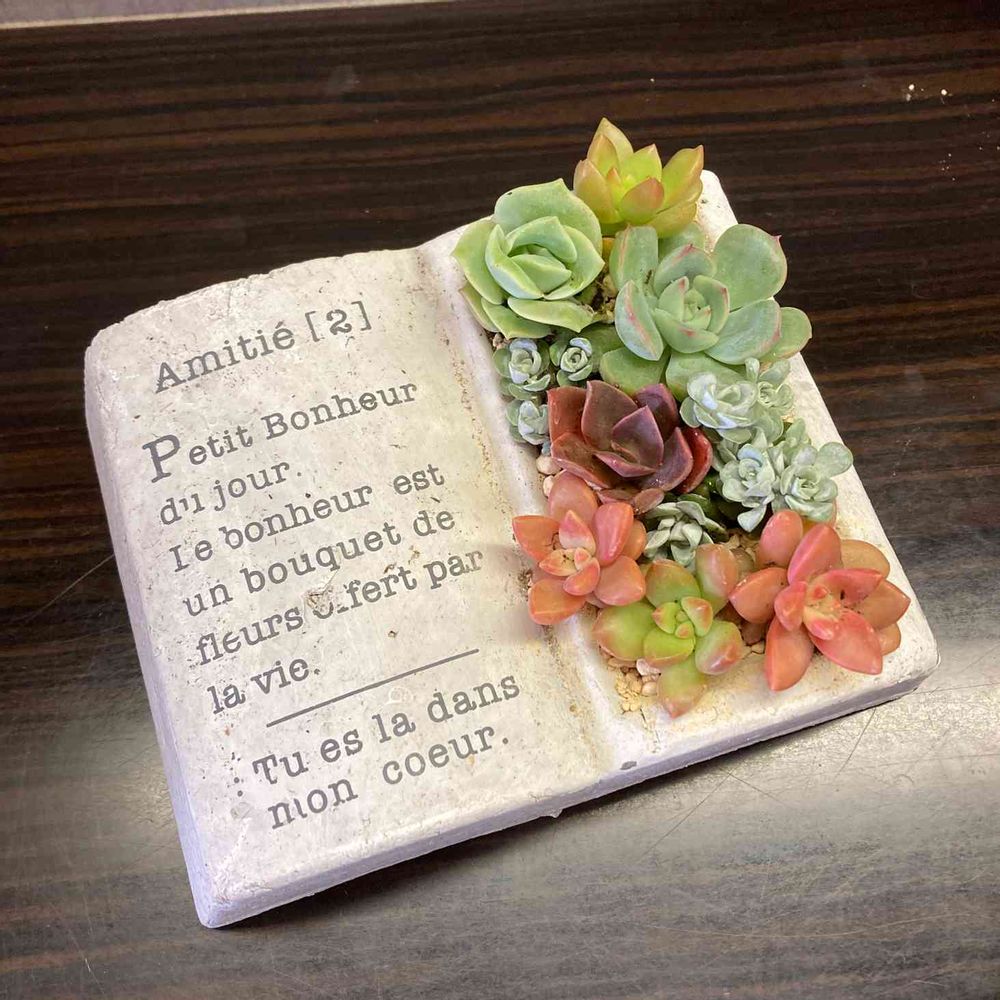 Amitié [2]
Petit Bonheur
du jour.
Le bonheur est
un bouquet de
fleurs offert par
la vie.
Tu es la dans
mon coeur.